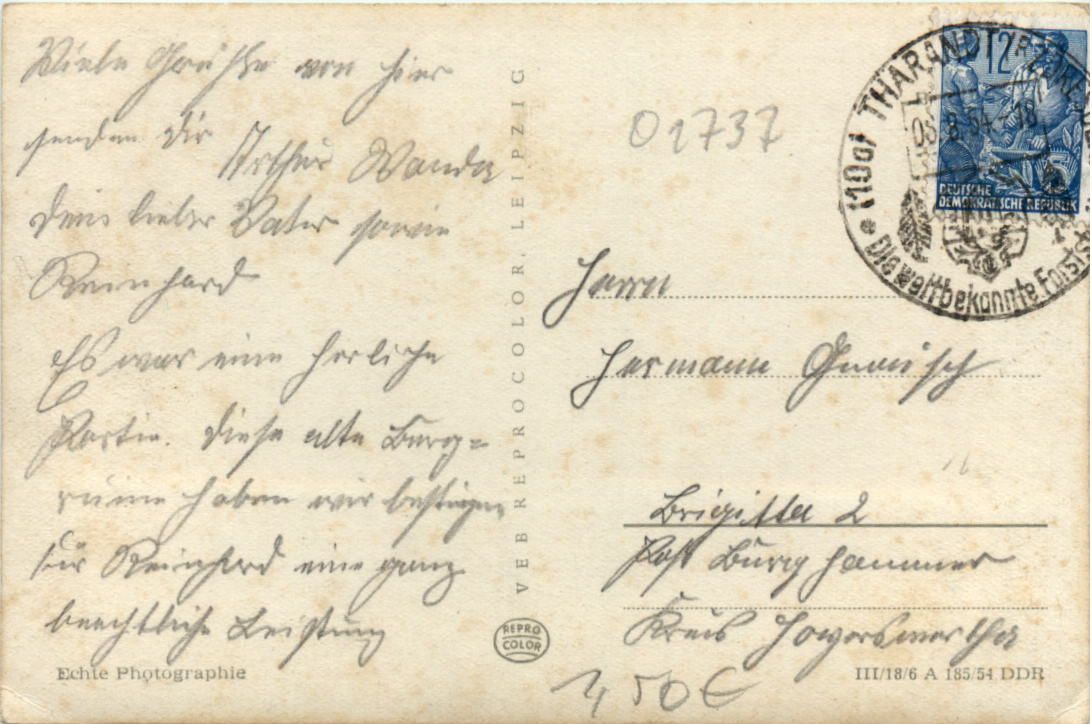 Viele Grüße von hier
senden dir Arthur Wanda
dein lieber Vater sowie
Reinhard
Es war eine herliche
Partie. Diese alte Burg=
ruine haben wir bestiegen
für Reinhard eine ganz
beachtliche Leistung
Echte Photographie
VEB REPROCOLOR LEIPZIG
REPRO
COLOR
01737
(10a) THARANDT
05.8.54-18
Die weltbekannte Forsts
12
DEUTSCHE
DEMOKRATISCHE REPUBLIK
Herrn
Hermann
Brigitta 2
Post Burghammer
Kreis Hoyerswerda
1,50€
III/18/6 A 185/54 DDR